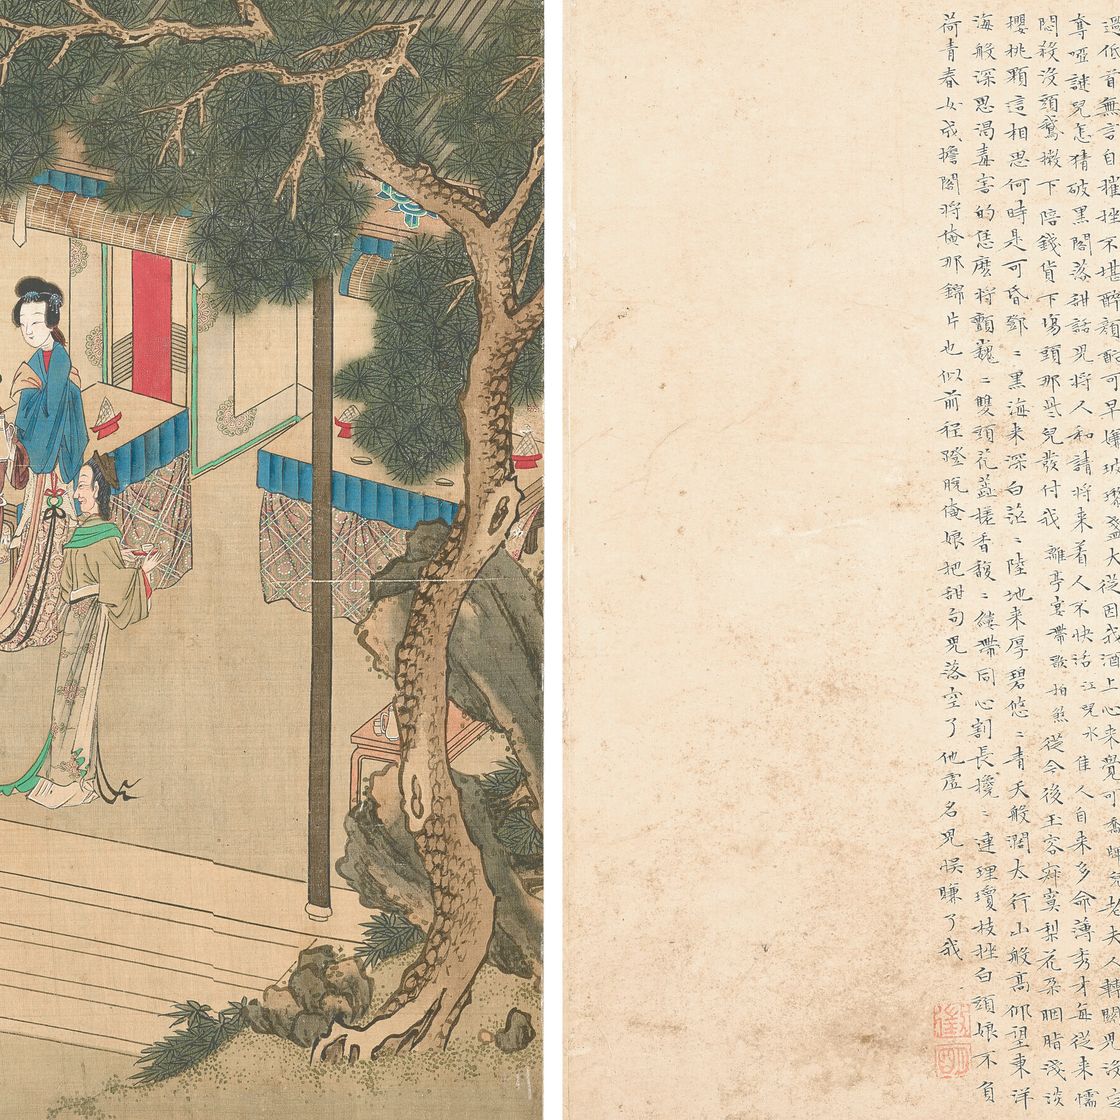 過低首無言自摧挫不堪醉顏酡可早嫌玻瓈盞大從因我酒上心來覺可喬牌兒老夫人轉關兒沒定
奪啞謎兒怎猜破黑閣落甜話兒將人和請將来着人不快活江兒水佳人自来多命薄秀才每従来懦
悶殺沒頭鵞撇下陪錢貨下塲頭那些兒發付我離亭宴帶歇拍煞從今後玉容寂寞梨花朶胭脂淺淡
櫻桃顆這相思何時是可昏鄧〻黑海来深白茫〻陸地来厚碧悠〻青天般濶太行山般高仰望東洋
海般深思渴毒害的恁麽将顫巍〻雙頭花蕋搓香馥〻縷帶同心割長攙〻連理瓊枝挫白頭娘不負
荷青春女成擔閣將俺那錦片也似前程蹬脫俺娘把甜句兒落空了他虛名兒悞賺了我
徵明